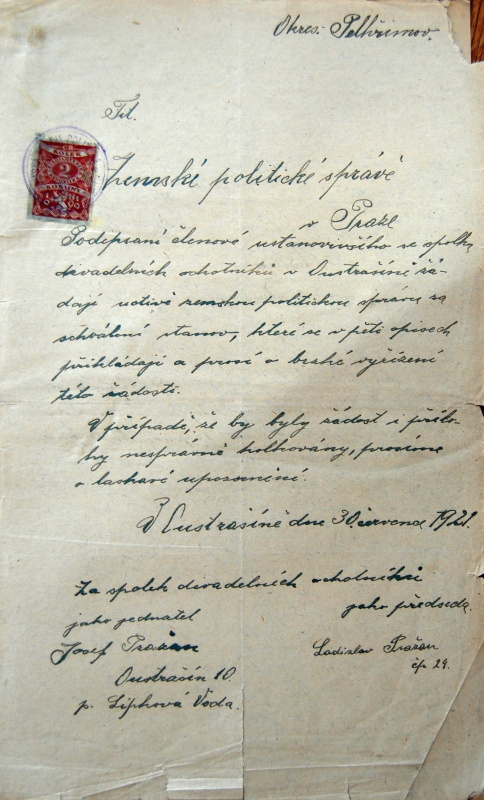 Okres: Pelhřimov.
Tit.
2
Zemské politické správě
v Praze
Podepsaní členové ustanovivšího se spolku
divadelních ochotníků v Oustrašíně žá-
dají uctivě zemskou politickou správu za
schválení stanov, které se v pěti opisech
přikládají a prosí o brzké vyřízení
této žádosti.
V případě, že by byly žádost i přílo-
hy nesprávně kolkovány, prosíme
o laskavé upozornění.
V Oustrašíně dne 30. června 1921.
Za spolek divadelních ochotníků
jako jednatel
jako předseda.
Josef Pražan
Ladislav Pražan
čp 24.
Oustrašín 10
p. Lipková Voda.